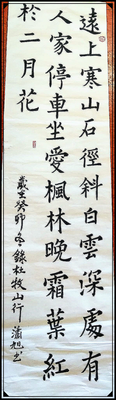 遠上寒山石徑斜白雲深處有
人家停車坐愛楓林晚霜葉紅
於二月花
歲在癸卯冬錄杜牧山行 瀟旭書